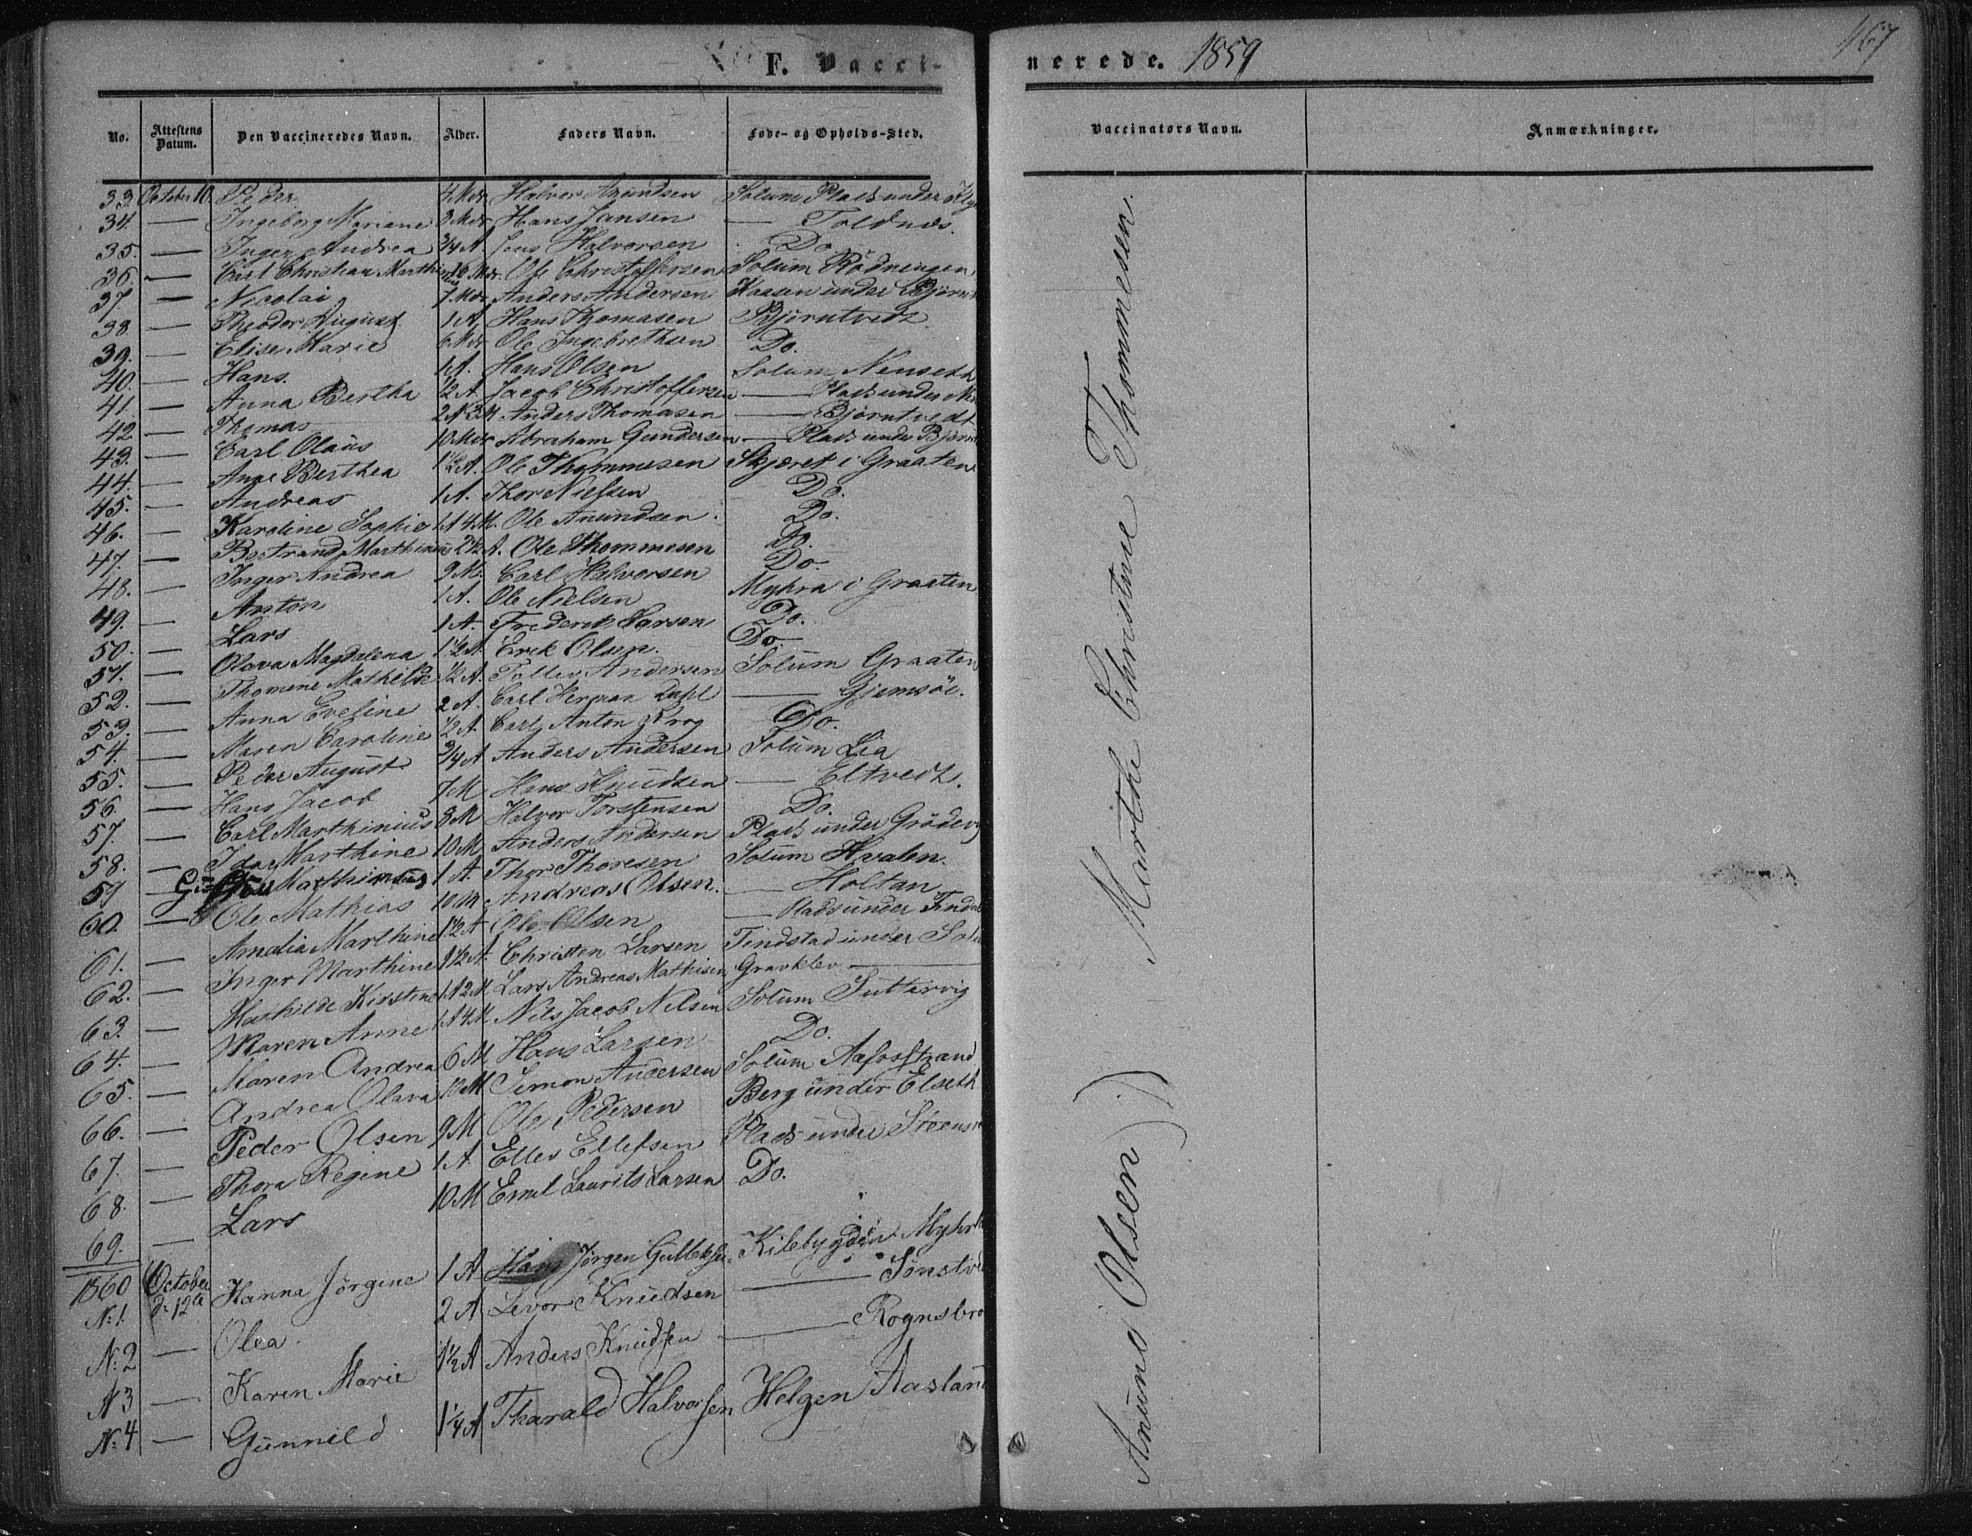 F. Vacci-
nerede. 1859
467
No. Attestens Datum. Den Vaccineredes Navn. Alder. Faders Navn. Føde- og Opholds-Sted.
Vaccinators Navn. Anmærkninger.
33. October 10. Peder 4 Mdr Halvor Amundsen Solum Plads under
34. — Ingeborg Mariane 3 Mdr Hans Jansen — Toldnæs.
35. — Inger Andrea 3/4 A. Jens Halvorsen Do
36. — Carl Christian Marthinius 16 Mdr. Ole Christoffersen Solum Rødningen
37 — Nicolai 7 Mdr Anders Andersen Haasen under Bjørnt
38 — Theodor August 1 A Hans Thomasen Bjørntvedt
39. — Elise Marie 6 Mdr Ole Ingebrethsen Do.
40. — Hans. 1 A. Hans Olsen Solum Nenseth
41. — Anna Bertha 1/2 A Jacob Christoffersen — Plads under
42 — Thomas 2 A 3 M Anders Thomasen — Bjørntvedt
43. — Carl Olaus 10 Mdr Abraham Gundersen — Plads under Bjørnt
44. — Ane Berthea 1 1/2 A. Ole Thommesen Skjæret i Graaten
45. — Andreas 1 A. Thor Nielsen Do.
46. — Karoline Sophie 1 A 4 M. Ole Amundsen Do.
47. — Bertrand Marthinus 2 1/2 A. Ole Thommesen Do.
48. — Inger Andrea 9 M. Carl Halvorsen Do
49. — Anton 1 A. Ole Nielsen Myhra i Graaten
50. — Lars 1 A. Frederik Larsen Do.
51. — Olava Magdalena 1 1/2 A. Erik Olsen. Do
52. — Thomene Mathilde 1/2 A. Tollev Andersen Solum Graaten
53. — Anna Eveline 2 A. Carl Herman — Gjemsøe.
54. — Maren Caroline 1/2 A. Carl Anton Krog Do.
55. — Peder August 3/4 A Anders Andersen Solum Lia
56 — Hans Jacob 7 M Hans Knudsen — Eltvedt.
57. — Carl Marthinius 8 M Halvor Torstensen Do.
58. — Ida Marthine 10 M Anders Andersen Plads under
59 — Gustav Marthinius 1 A. Thor Thoresen Solum Hvalen.
60. — Ole Mathias 10 M. Andreas Olsen. — Holtan
61. — Amalia Marthine 1 1/2 A Ole Olsen — Plads under
62. — Inger Marthine 1 1/2 A. Christen Larsen Tindstad under
63. — Mathilde Kirstine 1 A 2 M. Lars Andreas Mathisen Gravklev —
64. — Maren Anne 1 A 4 M Nils Jacob Nilsen Solum Tuttervig
65. — Maren Andrea 6 M Hans Larsen Do.
66. — Andrea Olava 10 M Simon Andersen Solum Aafosstrand
67. — Peder Olsen 9 M Ole Pedersen Berg under Elseth
68. — Thora Regine 1 A. Ellev Ellefsen Plads under
69. — Lars 10 M Emil Laurits Larsen Do.
1860
N: 1. October d: 12te Hanna Jørgine 1 A Hans Jørgen Gulleksen Kilebygden Myhr
N: 2 — Olea. 2 A Levor Knudsen — Sønstv
N 3 — Karen Marie 1 1/2 A Anders Knudsen — Rognsbro
N: 4 — Gunnild 1 1/4 A Tharald Halvorsen Helgen Aasland
Marthe Christine Thommesen.
Amund Olsen